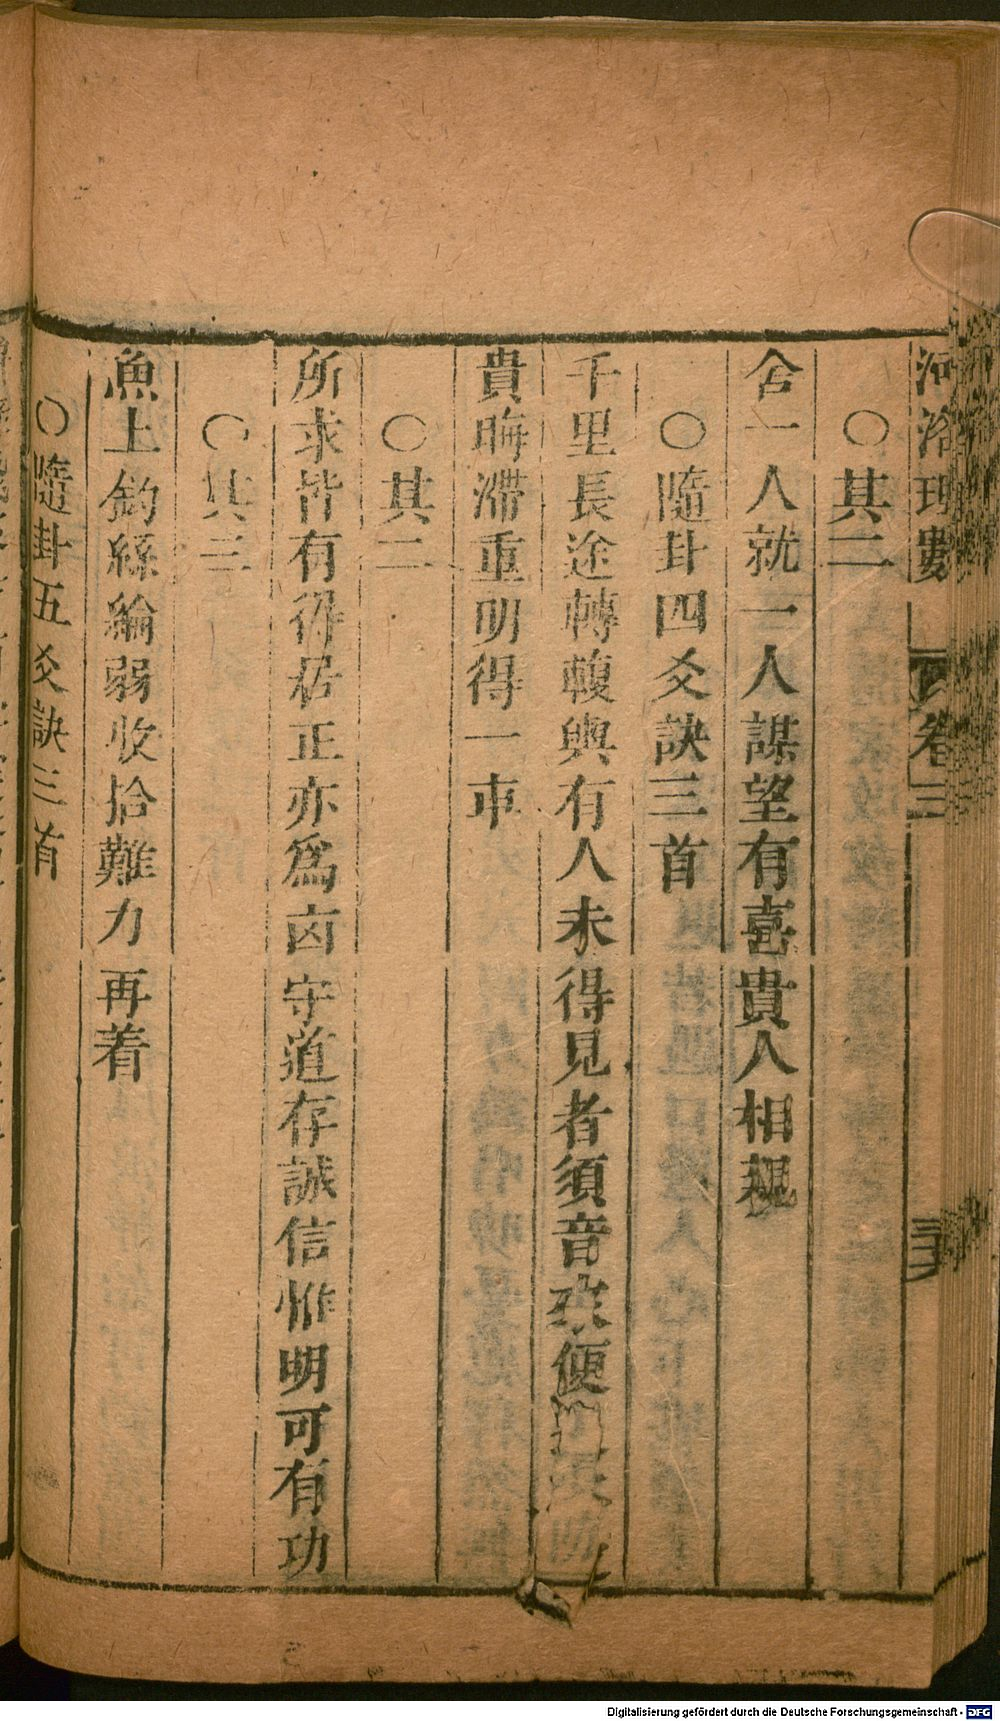 河洛理數 卷三
○其二
舍一人就一人謀望有喜貴人相親
○隨卦四爻訣三首
千里長途轉輹輿有人未得見者須音來便
貴晦滯重明得一車
○其二
所求皆有得居正亦爲凶守道存誠信惟明可有功
○其三
魚上釣絲綸弱收拾難力再着
○隨卦五爻訣三首
Digitalisierung gefördert durch die Deutsche Forschungsgemeinschaft - DFG